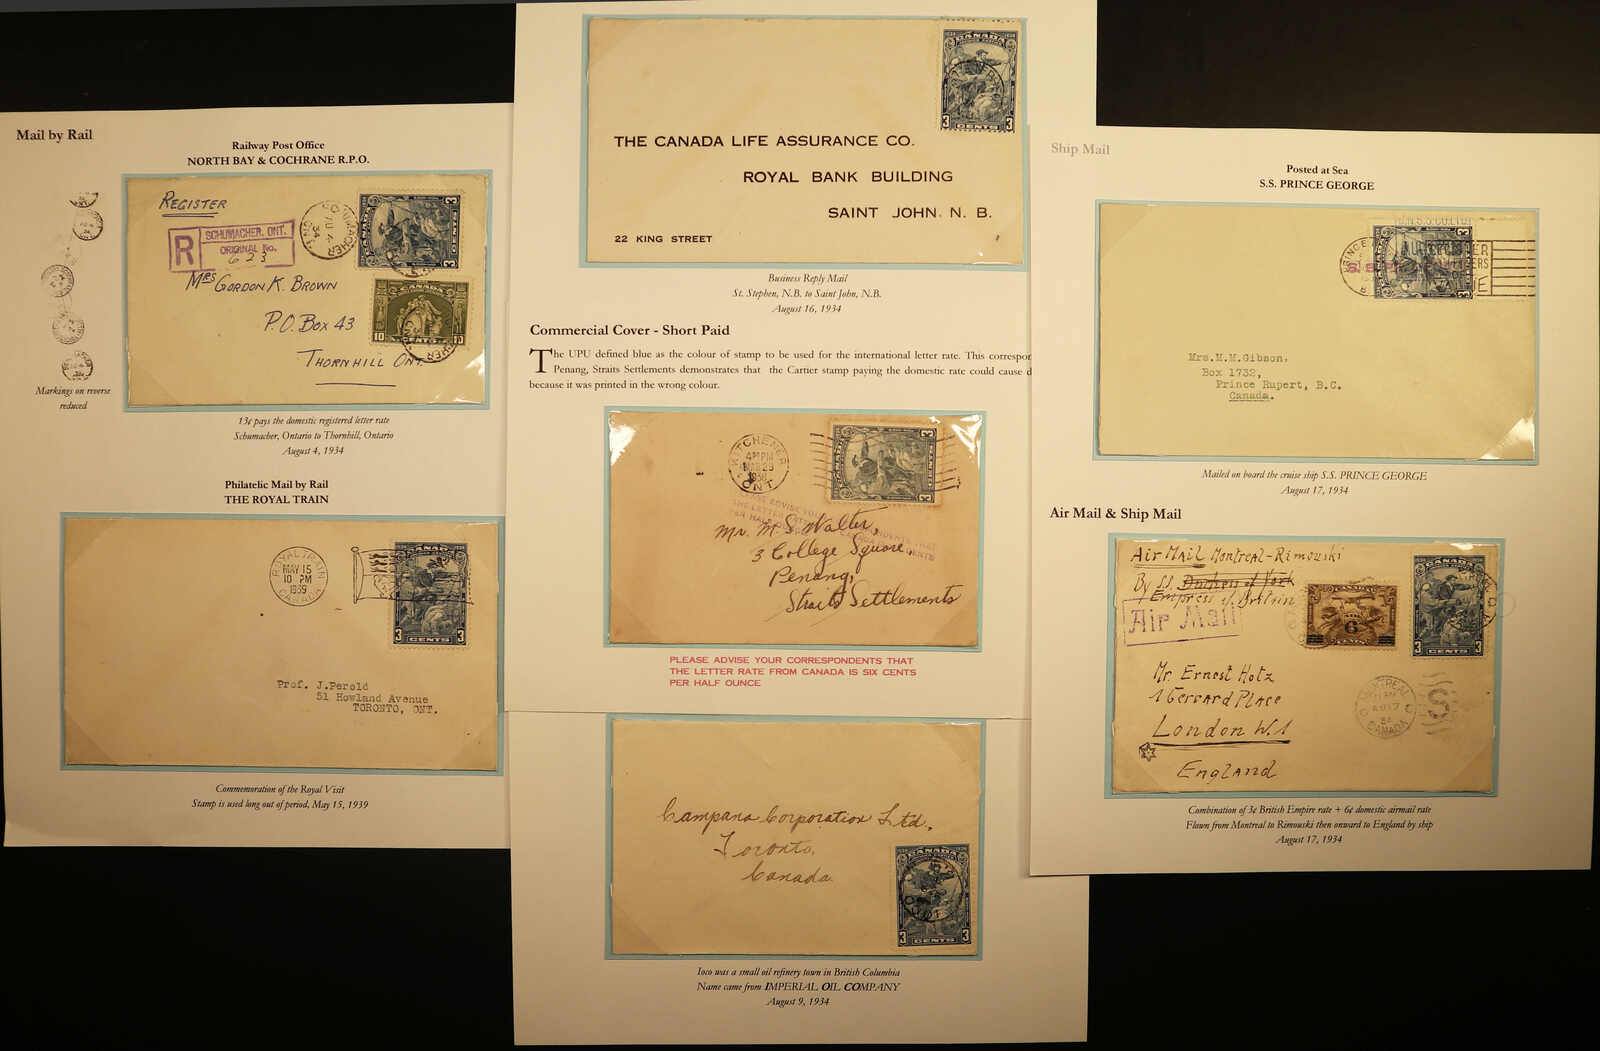 Mail by Rail
Railway Post Office
NORTH BAY & COCHRANE R.P.O.
REGISTER
R
SCHUMACHER, ONT.
ORIGINAL No.
623
SCHUMACHER
ONT.
34
10 CENTS 10
Mrs GORDON K. BROWN
P.O. BOX 43
THORNHILL ONT.
Markings on reverse
reduced
13¢ pays the domestic registered letter rate
Schumacher, Ontario to Thornhill, Ontario
August 4, 1934
Philatelic Mail by Rail
THE ROYAL TRAIN
ROYAL TRAIN
MAY 15
10 PM
1939
CANADA
CANADA
3 CENTS 3
Prof. J.Perold
51 Howland Avenue
TORONTO, ONT.
Commemoration of the Royal Visit
Stamp is used long out of period, May 15, 1939
CANADA
3 CENTS 3
THE CANADA LIFE ASSURANCE CO.
ROYAL BANK BUILDING
SAINT JOHN, N. B.
22 KING STREET
Business Reply Mail
St. Stephen, N.B. to Saint John, N.B.
August 16, 1934
Commercial Cover - Short Paid
The UPU defined blue as the colour of stamp to be used for the international letter rate. This
Penang, Straits Settlements demonstrates that the Cartier stamp paying the domestic rate could cause
because it was printed in the wrong colour.
KITCHENER
ONT.
Mr. M. S. Walter,
3 College Square,
Penang,
Straits Settlements
PLEASE ADVISE YOUR CORRESPONDENTS THAT
THE LETTER RATE FROM CANADA IS SIX CENTS
PER HALF OUNCE
Campana Corporation Ltd.
Toronto,
Canada
CANADA
3 CENTS 3
Ioco was a small oil refinery town in British Columbia
Name came from IMPERIAL OIL COMPANY
August 9, 1934
Ship Mail
Posted at Sea
S.S. PRINCE GEORGE
Mrs.M.M.Gibson,
Box 1732,
Prince Rupert, B.C.
Canada.
Mailed on board the cruise ship S.S. PRINCE GEORGE
August 17, 1934
Air Mail & Ship Mail
Air MAIL Montreal-Rimouski
By S.S. Duchess of York
Empress of Britain
Air Mail
CANADA
6
CANADA
3 CENTS 3
Mr. Ernest Hotz
1 Gerrard Place
London W.1
England
MONTREAL
CANADA
Combination of 3¢ British Empire rate + 6¢ domestic airmail rate
Flown from Montreal to Rimouski then onward to England by ship
August 17, 1934